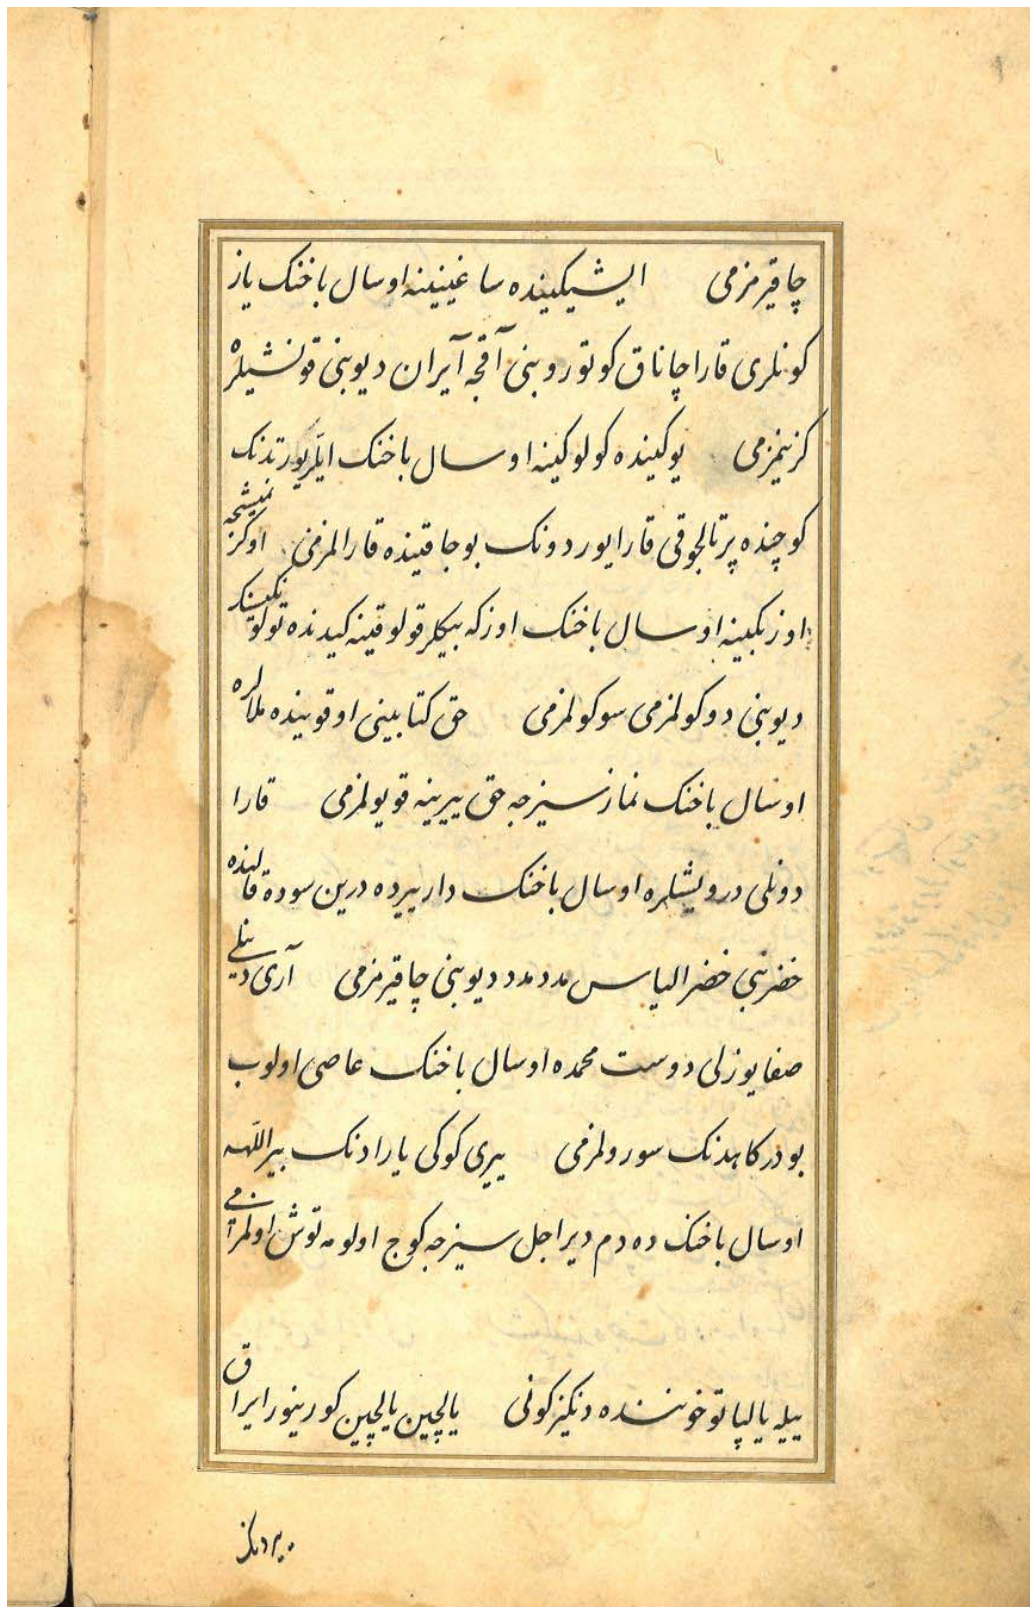 چاقیرمزمی ایشیکینده ساغیینه اوسال باخنک یاز
کونلری قارا چاناق کوتوروبنی آقجه آیران دیوبنی قونشیلره
کزینمزمی یوکینده کولوکینه اوسال باخنک ایلر یورتدنک
کوچنده پرتالجوقی قارا یوردونک بوجاقینده قارالمزمی اوکز نمیشجه
اوزبکینه اوسال باخنک اوزکه بیکلر قولوقینه کیدنده تولو تکینک
دیوبنی دوکولمزمی سوکولمزمی حق کتابینی اوقوینده ملالره
اوسال باخنک نمازسیزجه حق ییرینه قویولمزمی قارا
دونلی درویشلره اوسال باخنک داریرده درین سوده قالنده
خضر نبی خضر الیاس مدد مدد دیوبنی چاقیرمزمی آری دینلی
صفا یوزلی دوست محمده اوسال باخنک عاصی اولوب
بو درکاهدنک سورولمزمی ییری کوکی یارادنک بیر اللهه
اوسال باخنک ده دم دیر اجل سیزجه کوج اولومه توش اولمزمی
ییله یالپا توخوننده دنکیز کونی یالچین یالچین کورینور ایراق
بیر دنکز